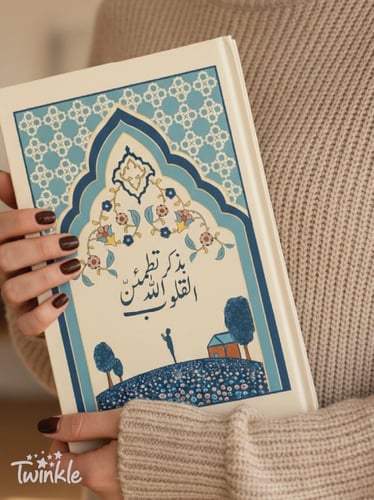 بذكر تطمئن
الله
القلوب
Twinkle